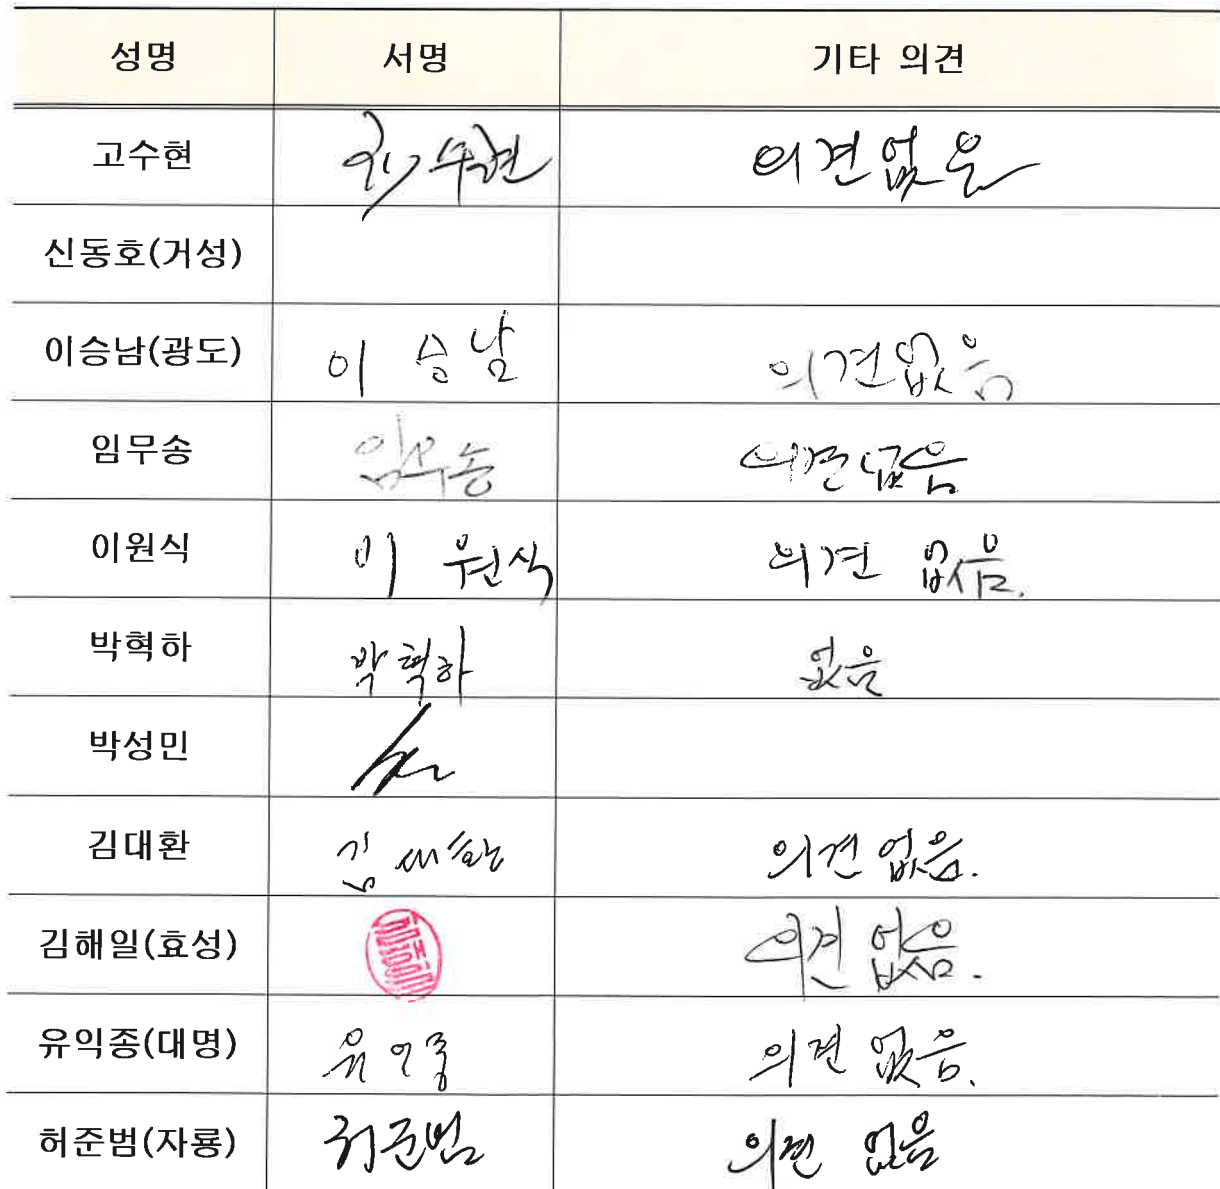 성명 서명 기타 의견
고수현 고수현 의견없음
신동호(거성)
이승남(광도) 이 승남 의견없음
임무송 임무송 의견없음
이원식 이 원식 의견 없음.
박혁하 박혁하 없음
박성민
김대환 김대환 의견 없음.
김해일(효성) 의견 없음.
유익종(대명) 유익종 의견 없음.
허준범(자룡) 허준범 의견 없음